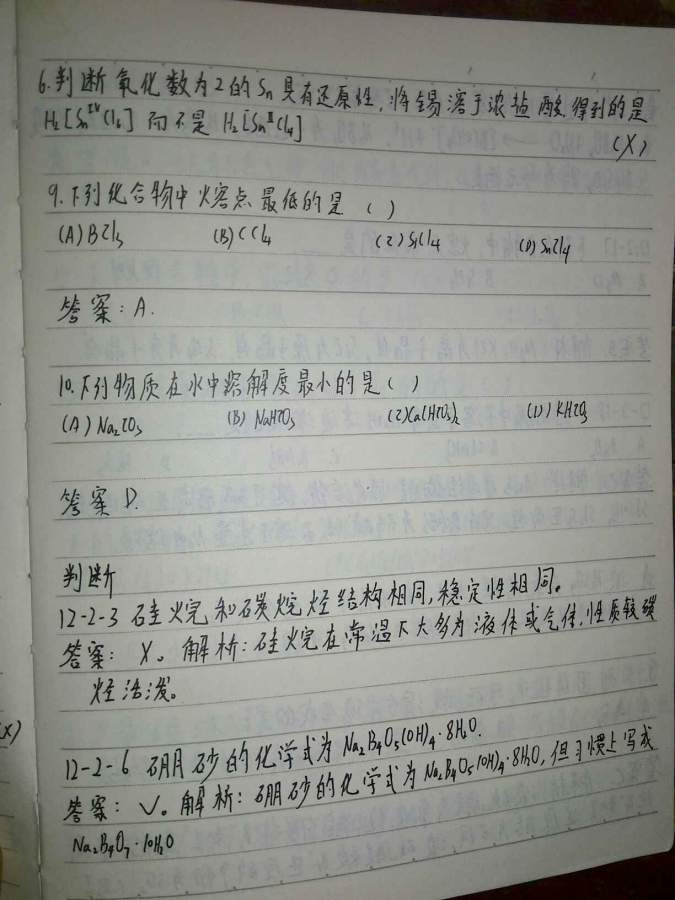 6.判断氧化数为2的Sn具有还原性,将锡溶于浓盐酸,得到的是
H₂[SnᴵⱽCl₆]而不是H₂[SnᴵᴵCl₄] (X)
9.下列化合物中熔点最低的是( )
(A)BCl₃ (B)CCl₄ (C)SiCl₄ (D)SnCl₄
答案:A.
10.下列物质在水中溶解度最小的是( )
(A)Na₂CO₃ (B)NaHCO₃ (C)Ca(HCO₃)₂ (D)KHCO₃
答案D.
判断
12-2-3 硅烷和碳烷烃结构相同,稳定性相同。
答案: X。解析:硅烷在常温下大多为液体或气体,性质较碳
烃活泼。
12-2-6 硼砂的化学式为Na₂B₄O₅(OH)₄·8H₂O.
答案: √。解析:硼砂的化学式为Na₂B₄O₅(OH)₄·8H₂O,但习惯上写成
Na₂B₄O₇·10H₂O
X)